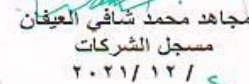 مجاهد محمد شافي العيفان
مسجل الشركات
/ ١٢ / ٢٠٢١